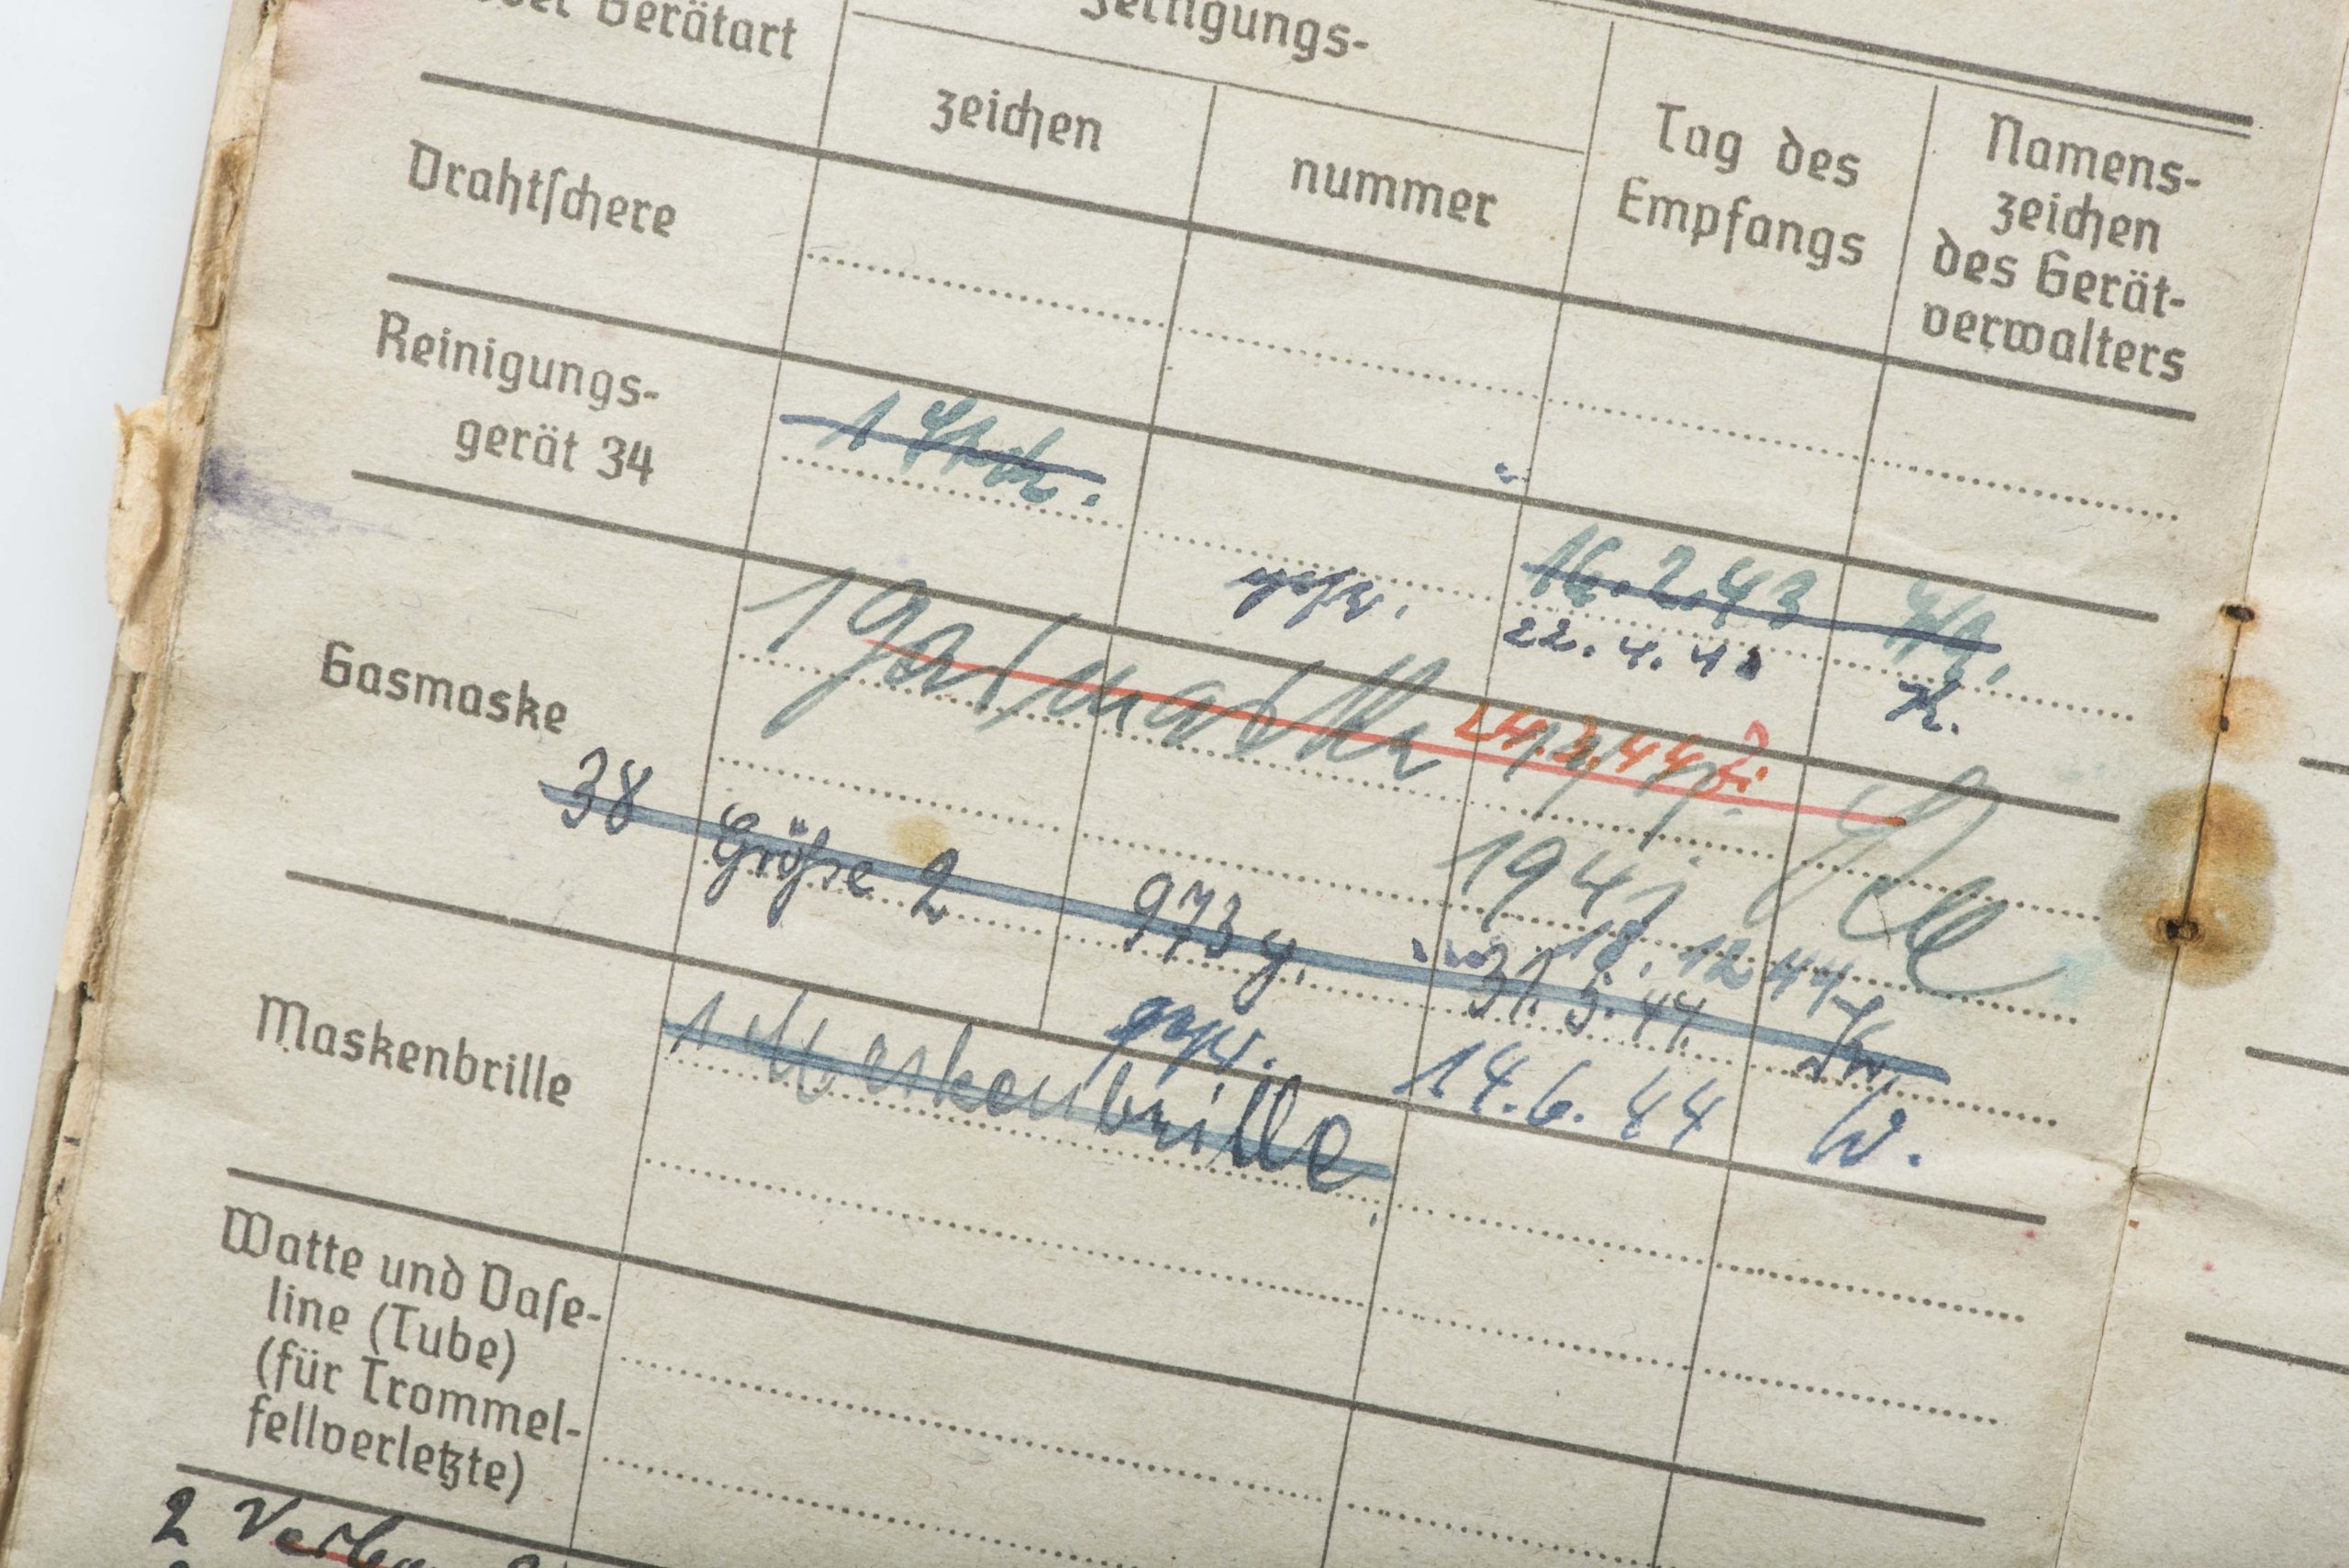 Gerätart
fertigungs-
zeichen
nummer
Tag des
Empfangs
Namens-
zeichen
des Gerät-
verwalters
Drahtſchere
Reinigungs-
gerät 34
1 Stck.
16.2.43
gepr.
22.4.4
K.
Gasmaske
1 Gasmaske
24.3.44
1941
38 Größe 2 973 g.
18.12.44
31.5.44
gepr.
14.6.44
W.
Maskenbrille
1 Maskenbrille
Watte und Vaſe-
line (Tube)
(für Trommel-
fellverletzte)
2